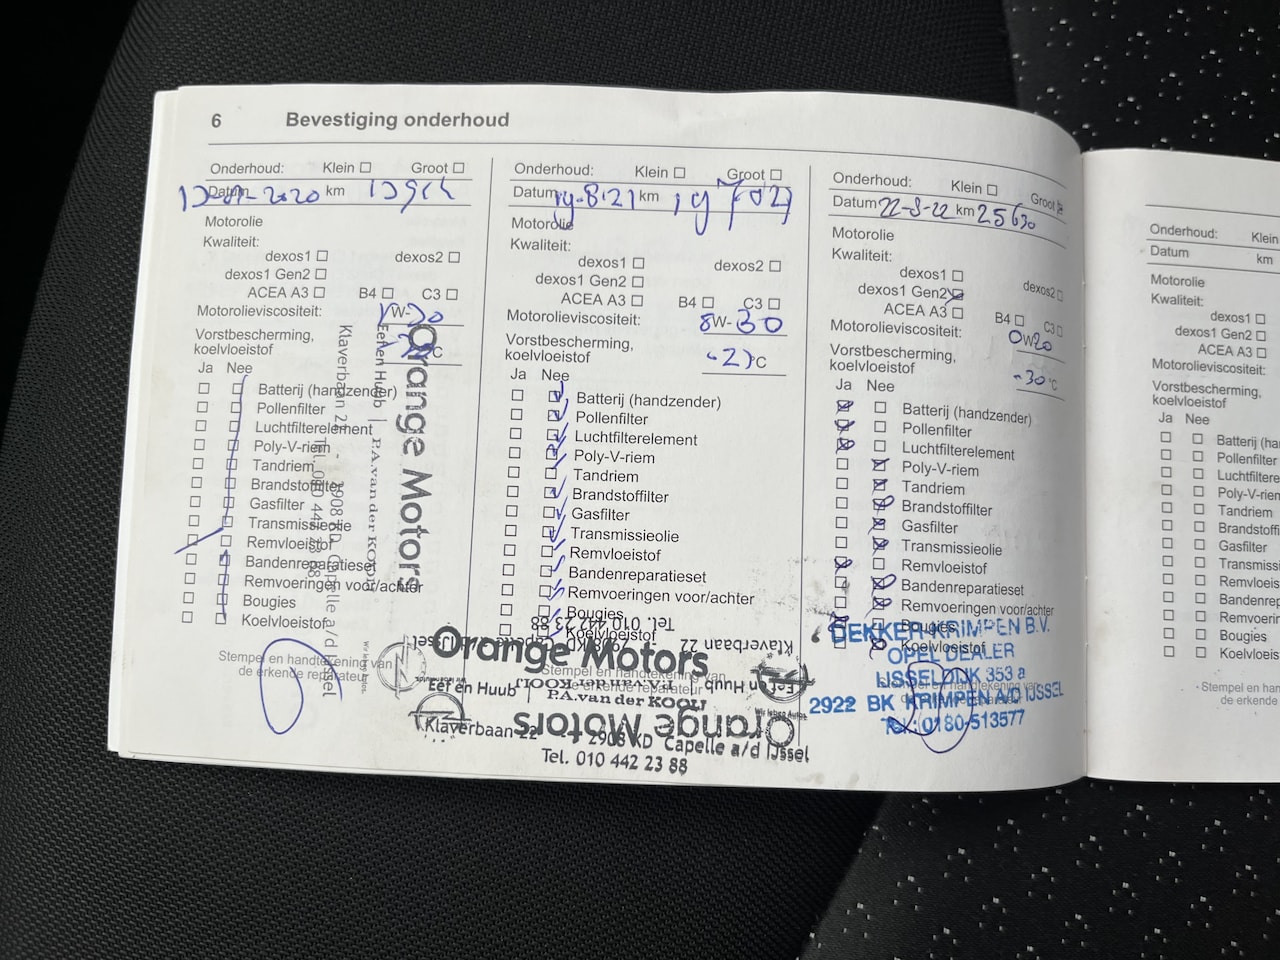 6 Bevestiging onderhoud
Onderhoud: Klein Groot
Datum 2020 km
Motorolie
Kwaliteit:
dexos1 dexos2
dexos1 Gen2
ACEA A3 B4 C3
Motorolieviscositeit: W-30
Vorstbescherming,
koelvloeistof °C
Ja Nee
Batterij (handzender)
Pollenfilter
Luchtfilterelement
Poly-V-riem
Tandriem
Brandstoffilter
Gasfilter
Transmissieolie
Remvloeistof
Bandenreparatieset
Remvoeringen voor/achter
Bougies
Koelvloeistof
Stempel en handtekening van
de erkende reparateur
Orange Motors
Eef en Huub | P.A. van der KOOIJ
Klaverbaan 22 - 2908 KD Capelle a/d IJssel
Tel. 010 442 23 88
Onderhoud: Klein Groot
Datum 19-8-21 km
Motorolie
Kwaliteit:
dexos1 dexos2
dexos1 Gen2
ACEA A3 B4 C3
Motorolieviscositeit: W-30
Vorstbescherming,
koelvloeistof °C
Ja Nee
Batterij (handzender)
Pollenfilter
Luchtfilterelement
Poly-V-riem
Tandriem
Brandstoffilter
Gasfilter
Transmissieolie
Remvloeistof
Bandenreparatieset
Remvoeringen voor/achter
Bougies
Koelvloeistof
Stempel en handtekening van
de erkende reparateur
Orange Motors
Eef en Huub | P.A. van der KOOIJ
Klaverbaan 22 - 2908 KD Capelle a/d IJssel
Tel. 010 442 23 88
Orange Motors
Eef en Huub | P.A. van der KOOIJ
Klaverbaan 22
Tel. 010 442 23 88
Onderhoud: Klein Groot
Datum 22-8-22 km 25630
Motorolie
Kwaliteit:
dexos1 dexos2
dexos1 Gen2
ACEA A3 B4 C3
Motorolieviscositeit: 0W20
Vorstbescherming,
koelvloeistof -30 °C
Ja Nee
Batterij (handzender)
Pollenfilter
Luchtfilterelement
Poly-V-riem
Tandriem
Brandstoffilter
Gasfilter
Transmissieolie
Remvloeistof
Bandenreparatieset
Remvoeringen voor/achter
Bougies
Koelvloeistof
Stempel en handtekening van
de erkende reparateur
DEKKER-KRIMPEN B.V.
OPEL DEALER
IJSSELDIJK 353 a
2922 BK KRIMPEN A/D IJSSEL
Tel.: 0180-513577
Onderhoud: Klein
Datum km
Motorolie
Kwaliteit:
dexos1
dexos1 Gen2
ACEA A3
Motorolieviscositeit:
Vorstbescherming,
koelvloeistof
Ja Nee
Batterij (han
Pollenfilter
Luchtfiltere
Poly-V-riem
Tandriem
Brandstoffi
Gasfilter
Transmiss
Remvloeis
Bandenrep
Remvoerin
Bougies
Koelvloeis
Stempel en hand
de erkende